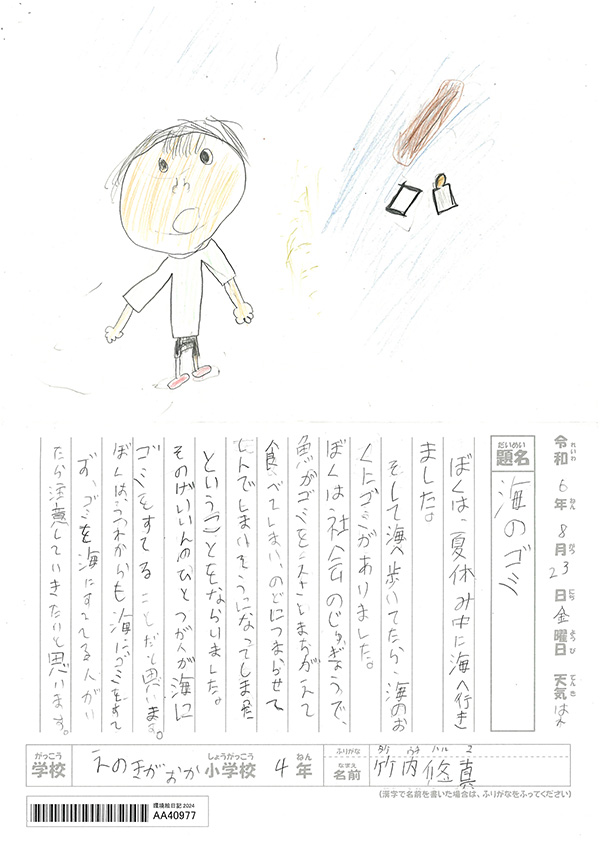 令和6年8月23日金曜日 天気 はれ
れいわ ねん がつ にち ようび てんき
だいめい
題名 海のゴミ
ぼくは、夏休み中に海へ行き
ました。
そして海へ歩いてたら、海のお
くにゴミがありました。
ぼくは社会のじゅぎょうで、
魚がゴミをえさとまちがえて
食べてしまい、のどにつまらせて
しんでしまいそうになってしまった
ということをならいました。
そのげいいんのひとつが人が海に
ゴミをすてることだと思います。
ぼくは、うつわからも海にゴミをすて
ず、ゴミを海にすててる人がい
たら注意していきたいと思います。
がっこう しょうがっこう ねん
学校 えのきがおか小学校 4年
ふりがな
なまえ
名前 竹内悠真
(漢字で名前を書いた場合は、ふりがなをふってください)
環境絵日記2024
AA40977